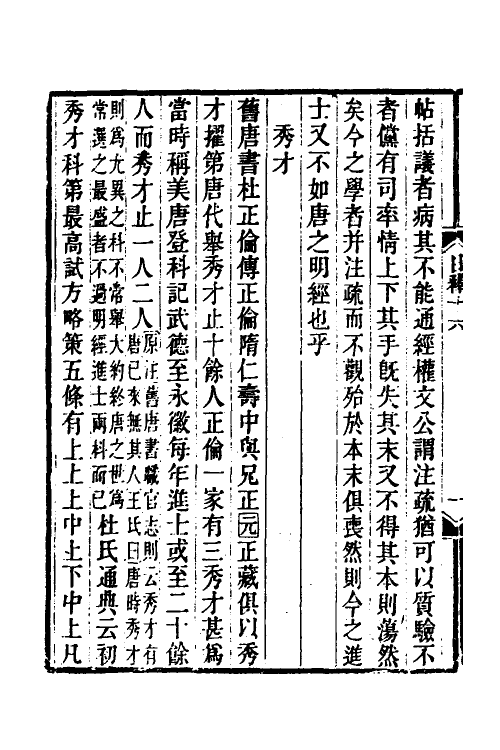 帖括議者病其不能通經權文公謂注疏猶可以質驗不
者儻有司率情上下其手旣失其末又不得其本則蕩然
矣今之學者并注疏而不觀殆於本末俱喪然則今之進
士又不如唐之明經也乎
秀才
舊唐書杜正倫傳正倫隋仁壽中與兄正元正藏俱以秀
才擢第唐代舉秀才止十餘人正倫一家有三秀才甚爲
當時稱美唐登科記武德至永徽每年進士或至二十餘
人而秀才止一人二人原注舊唐書職官志則云秀才有唐已來無其人王氏曰唐時秀才
則爲尤異之科不常舉大約終唐之世爲常選之最盛者不過明經進士兩科而已杜氏通典云初
秀才科第最高試方略策五條有上上上中上下中上凡
十六
一